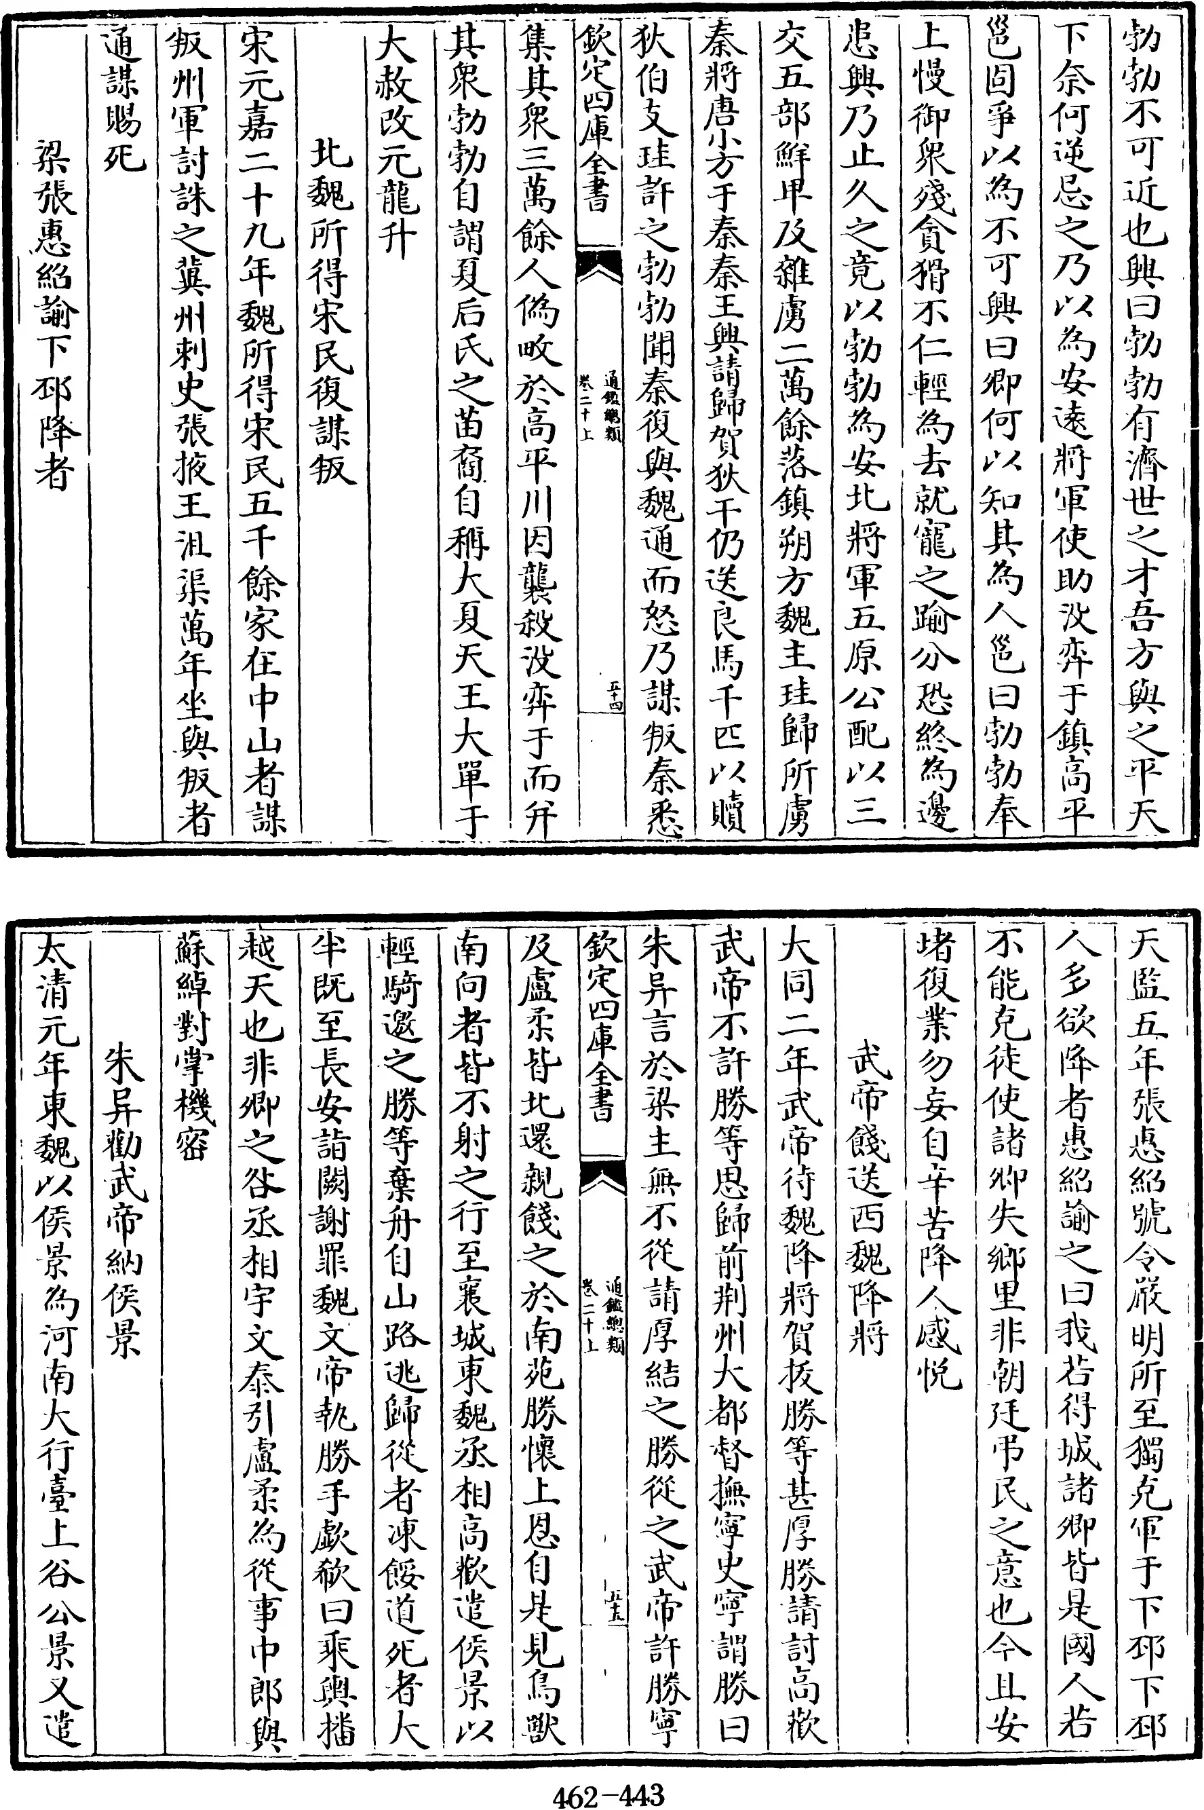 勃勃不可近也興曰勃勃有濟世之才吾方與之平天
下奈何逆忌之乃以為安遠將軍使助没弈于鎮高平
邕固爭以為不可興曰卿何以知其為人邕曰勃勃奉
上慢御衆殘貪猾不仁輕為去就寵之踰分恐終為邊
患興乃止久之竟以勃勃為安北將軍五原公配以三
交五部鮮卑及雜虜二萬餘落鎮朔方魏主珪歸所虜
秦將唐小方于秦秦王興請歸賀狄干仍送良馬千匹以贖
狄伯支珪許之勃勃聞秦復與魏通而怒乃謀叛秦悉
欽定四庫全書
通鑑總類
卷二十上
五十四
集其衆三萬餘人偽畋於高平川因襲殺没弈于而并
其衆勃勃自謂夏后氏之苗裔自稱大夏天王大單于
大赦改元龍升
北魏所得宋民復謀叛
宋元嘉二十九年魏所得宋民五千餘家在中山者謀
叛州軍討誅之冀州刺史張掖王沮渠萬年坐與叛者
通謀賜死
梁張惠紹諭下邳降者
天監五年張惠紹號令嚴明所至獨克軍于下邳下邳
人多欲降者惠紹諭之曰我若得城諸卿皆是國人若
不能克徒使諸卿失鄉里非朝廷弔民之意也今且安
堵復業勿妄自辛苦降人感悦
武帝餞送西魏降將
大同二年武帝待魏降將賀拔勝等甚厚勝請討高歡
武帝不許勝等思歸前荆州大都督撫寧史寧謂勝曰
朱异言於梁主無不從請厚結之勝從之武帝許勝寧
欽定四庫全書
通鑑總類
卷二十上
五十五
及盧柔皆北還親餞之於南苑勝懷上恩自是見鳥獸
南向者皆不射之行至襄城東魏丞相高歡遣侯景以
輕騎邀之勝等棄舟自山路逃歸從者凍餒道死者大
半既至長安詣闕謝罪魏文帝執勝手歔欷曰乘輿播
越天也非卿之咎丞相宇文泰引盧柔為從事中郎與
蘇綽對掌機密
朱异勸武帝納侯景
太清元年東魏以侯景為河南大行臺上谷公景又遣
462-443